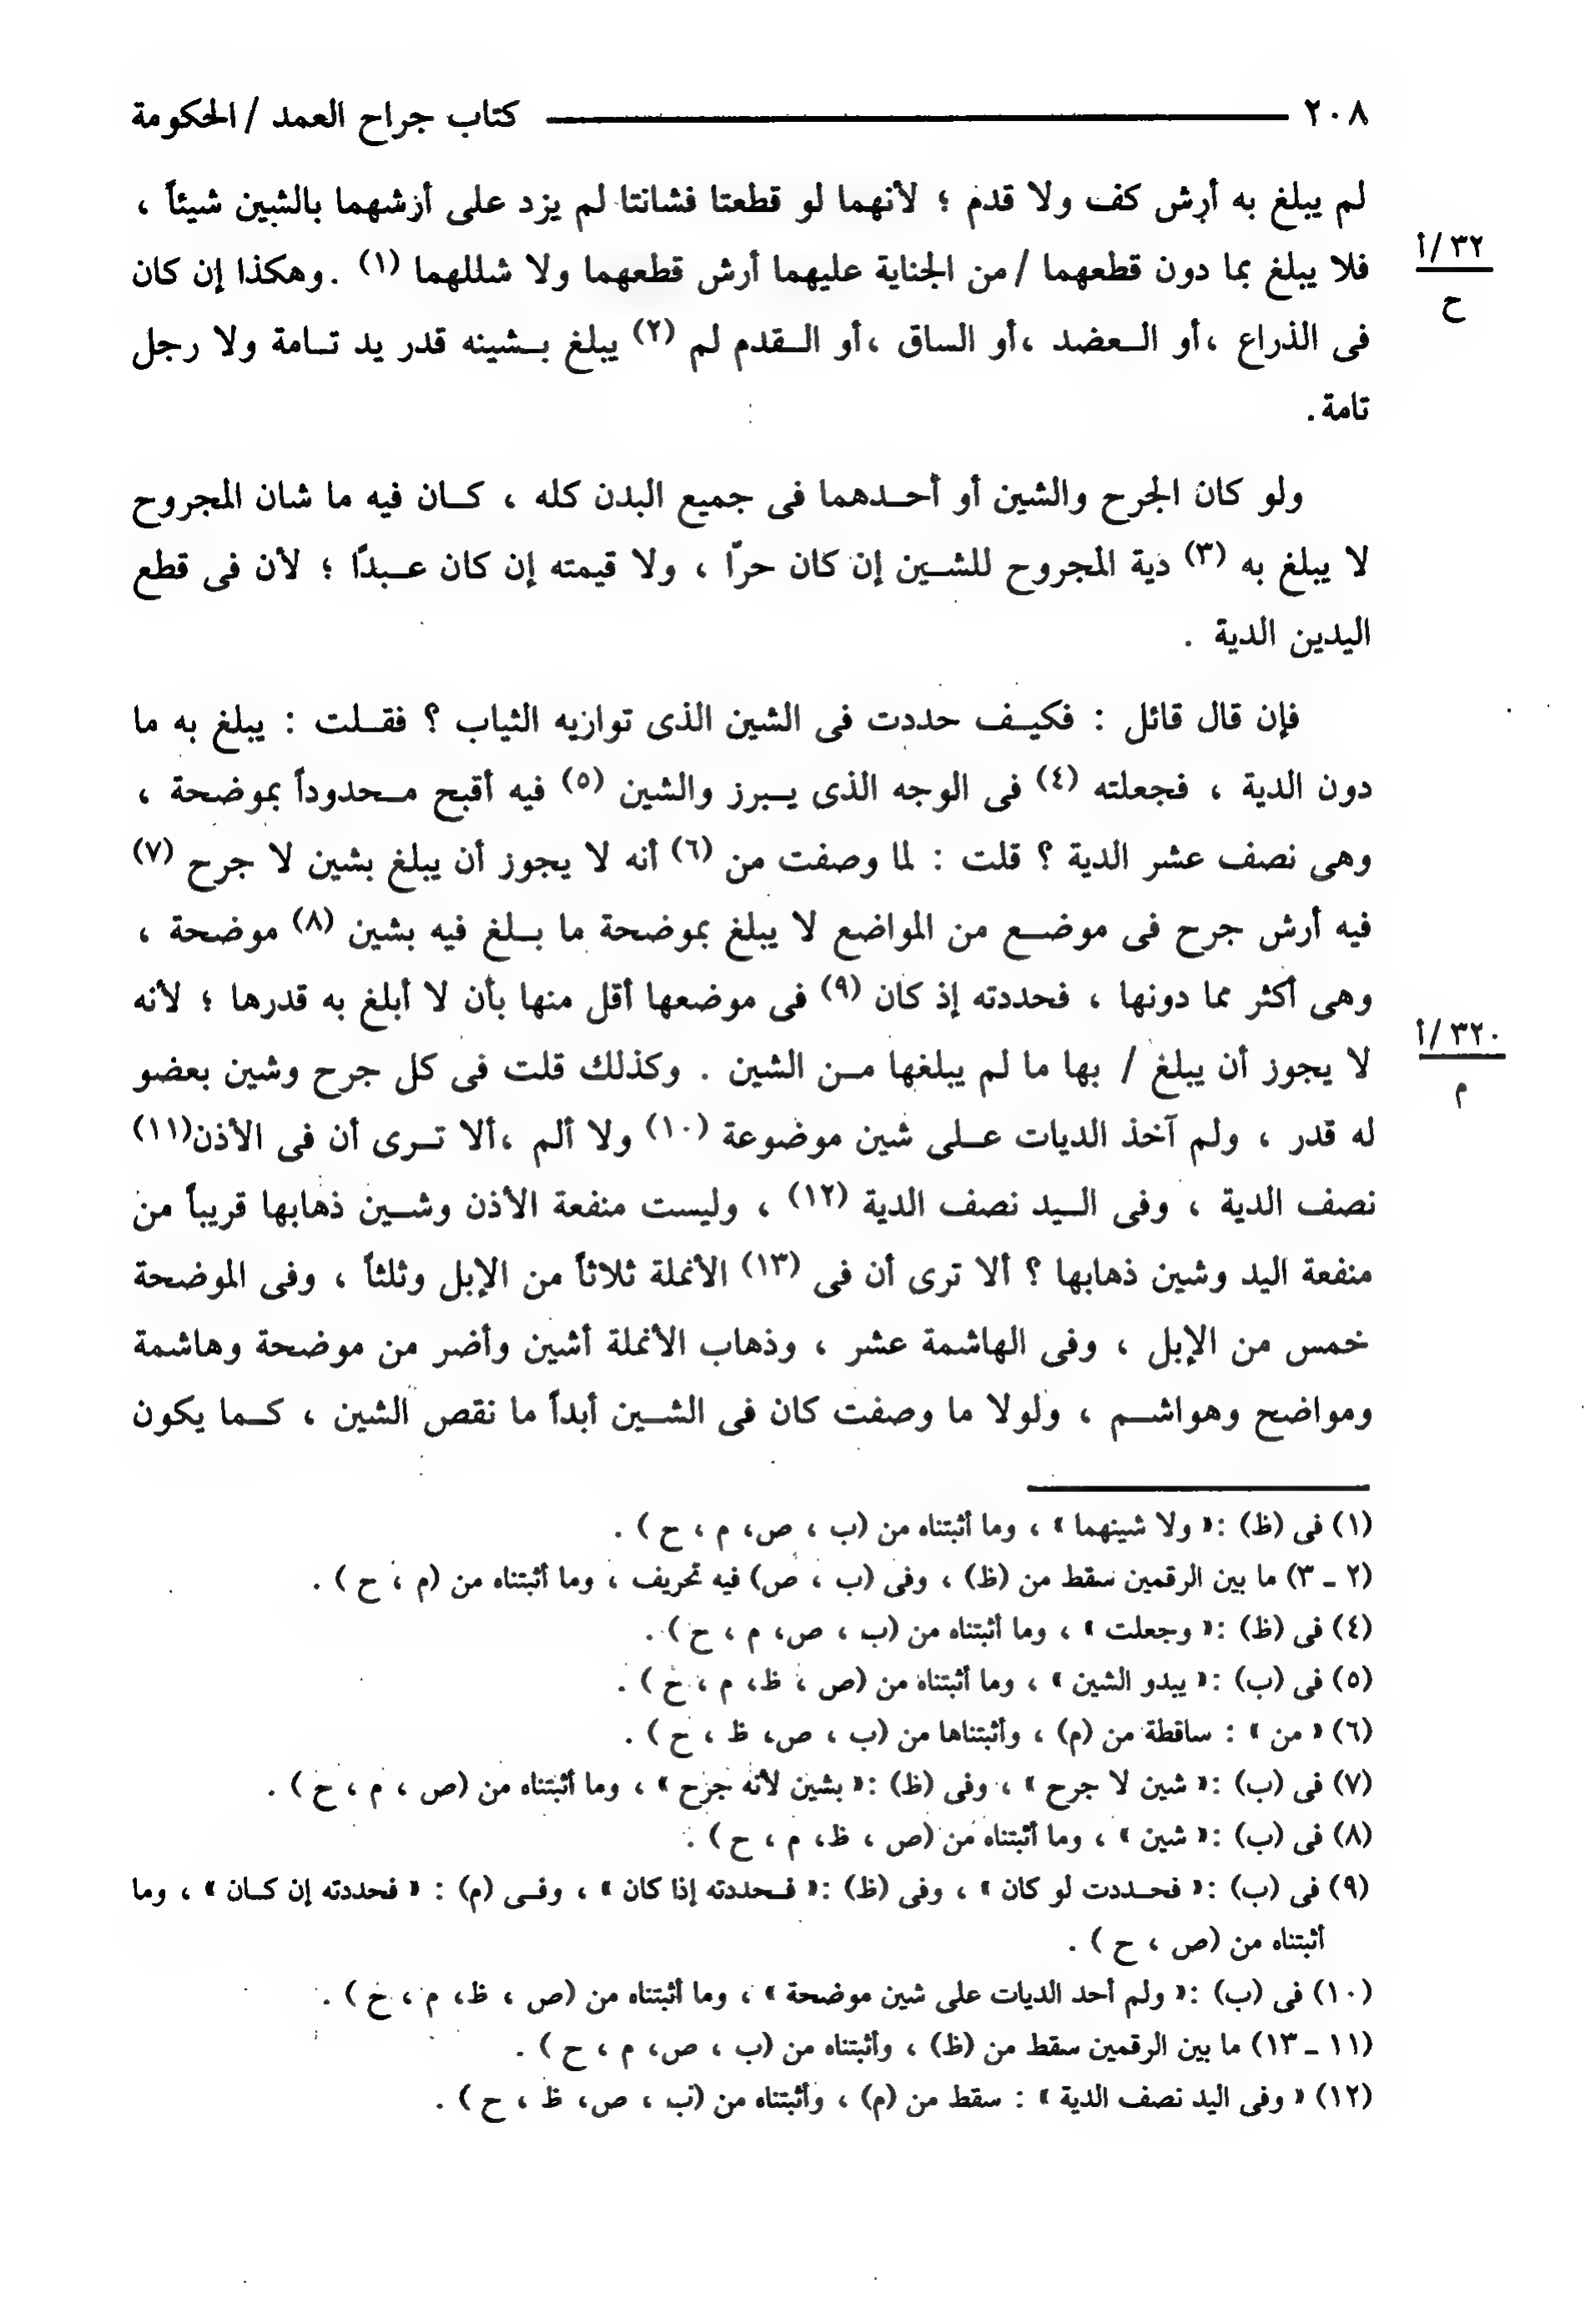 ٢٠٨ كتاب جراح العمد / الحكومة
لم يبلغ به أرش كف ولا قدم ؛ لأنهما لو قطعتا فشانتا لم يزد على أرشهما بالشين شيئاً ،
٣٢/أ
ح
فلا يبلغ بما دون قطعهما / من الجناية عليهما أرش قطعهما ولا شللهما (١) . وهكذا إن كان
فى الذراع ، أو العضد ، أو الساق ، أو القدم لم (٢) يبلغ بشينه قدر يد تامة ولا رجل
تامة .
ولو كان الجرح والشين أو أحدهما فى جميع البدن كله ، كان فيه ما شان المجروح
لا يبلغ به (٣) دية المجروح للشين إن كان حرّا ، ولا قيمته إن كان عبدًا ؛ لأن فى قطع
اليدين الدية .
فإن قال قائل : فكيف حددت فى الشين الذى توازيه الثياب ؟ فقلت : يبلغ به ما
دون الدية ، فجعلته (٤) فى الوجه الذى يبرز والشين (٥) فيه أقبح محدوداً بموضحة ،
وهى نصف عشر الدية ؟ قلت : لما وصفت من (٦) أنه لا يجوز أن يبلغ بشين لا جرح (٧)
فيه أرش جرح فى موضع من المواضع لا يبلغ بموضحة ما بلغ فيه بشين (٨) موضحة ،
وهى أكثر مما دونها ، فحددته إذ كان (٩) فى موضعها أقل منها بأن لا أبلغ به قدرها ؛ لأنه
٣٢٠/أ
م
لا يجوز أن يبلغ / بها ما لم يبلغها من الشين . وكذلك قلت فى كل جرح وشين بعضو
له قدر ، ولم آخذ الديات على شين موضوعة (١٠) ولا ألم ، ألا ترى أن فى الأذن (١١)
نصف الدية ، وفى اليد نصف الدية (١٢) ، وليست منفعة الأذن وشين ذهابها قريباً من
منفعة اليد وشين ذهابها ؟ ألا ترى أن فى (١٣) الأنملة ثلاثاً من الإبل وثلثاً ، وفى الموضحة
خمس من الإبل ، وفى الهاشمة عشر ، وذهاب الأنملة أشين وأضر من موضحة وهاشمة
ومواضح وهواشم ، ولولا ما وصفت كان فى الشين أبداً ما نقص الشين ، كما يكون
(١) فى (ظ) : « ولا شينهما » ، وما أثبتناه من (ب ، ص، م ، ح ) .
(٢ - ٣) ما بين الرقمين سقط من (ظ) ، وفى (ب ، ص) فيه تحريف ، وما أثبتناه من (م ، ح ) .
(٤) فى (ظ) : « وجعلت » ، وما أثبتناه من (ب ، ص، م ، ح ) .
(٥) فى (ب) : « يبدو الشين » ، وما أثبتناه من (ص ، ظ، م ، ح ) .
(٦) « من » : ساقطة من (م) ، وأثبتناها من (ب ، ص، ظ ، ح ) .
(٧) فى (ب) : « شين لا جرح » ، وفى (ظ) : « بشين لأنه جرح » ، وما أثبتناه من (ص ، م ، ح ) .
(٨) فى (ب) : « شين » ، وما أثبتناه من (ص ، ظ، م ، ح ) .
(٩) فى (ب) : « فحددت لو كان » ، وفى (ظ) : « فحددته إذا كان » ، وفى (م) : « فحددته إن كان » ، وما
أثبتناه من (ص ، ح ) .
(١٠) فى (ب) : « ولم أحد الديات على شين موضحة » ، وما أثبتناه من (ص ، ظ، م ، ح ) .
(١١ - ١٣) ما بين الرقمين سقط من (ظ) ، وأثبتناه من (ب ، ص، م ، ح ) .
(١٢) « وفى اليد نصف الدية » : سقط من (م) ، وأثبتناه من (ب ، ص، ظ ، ح ) .